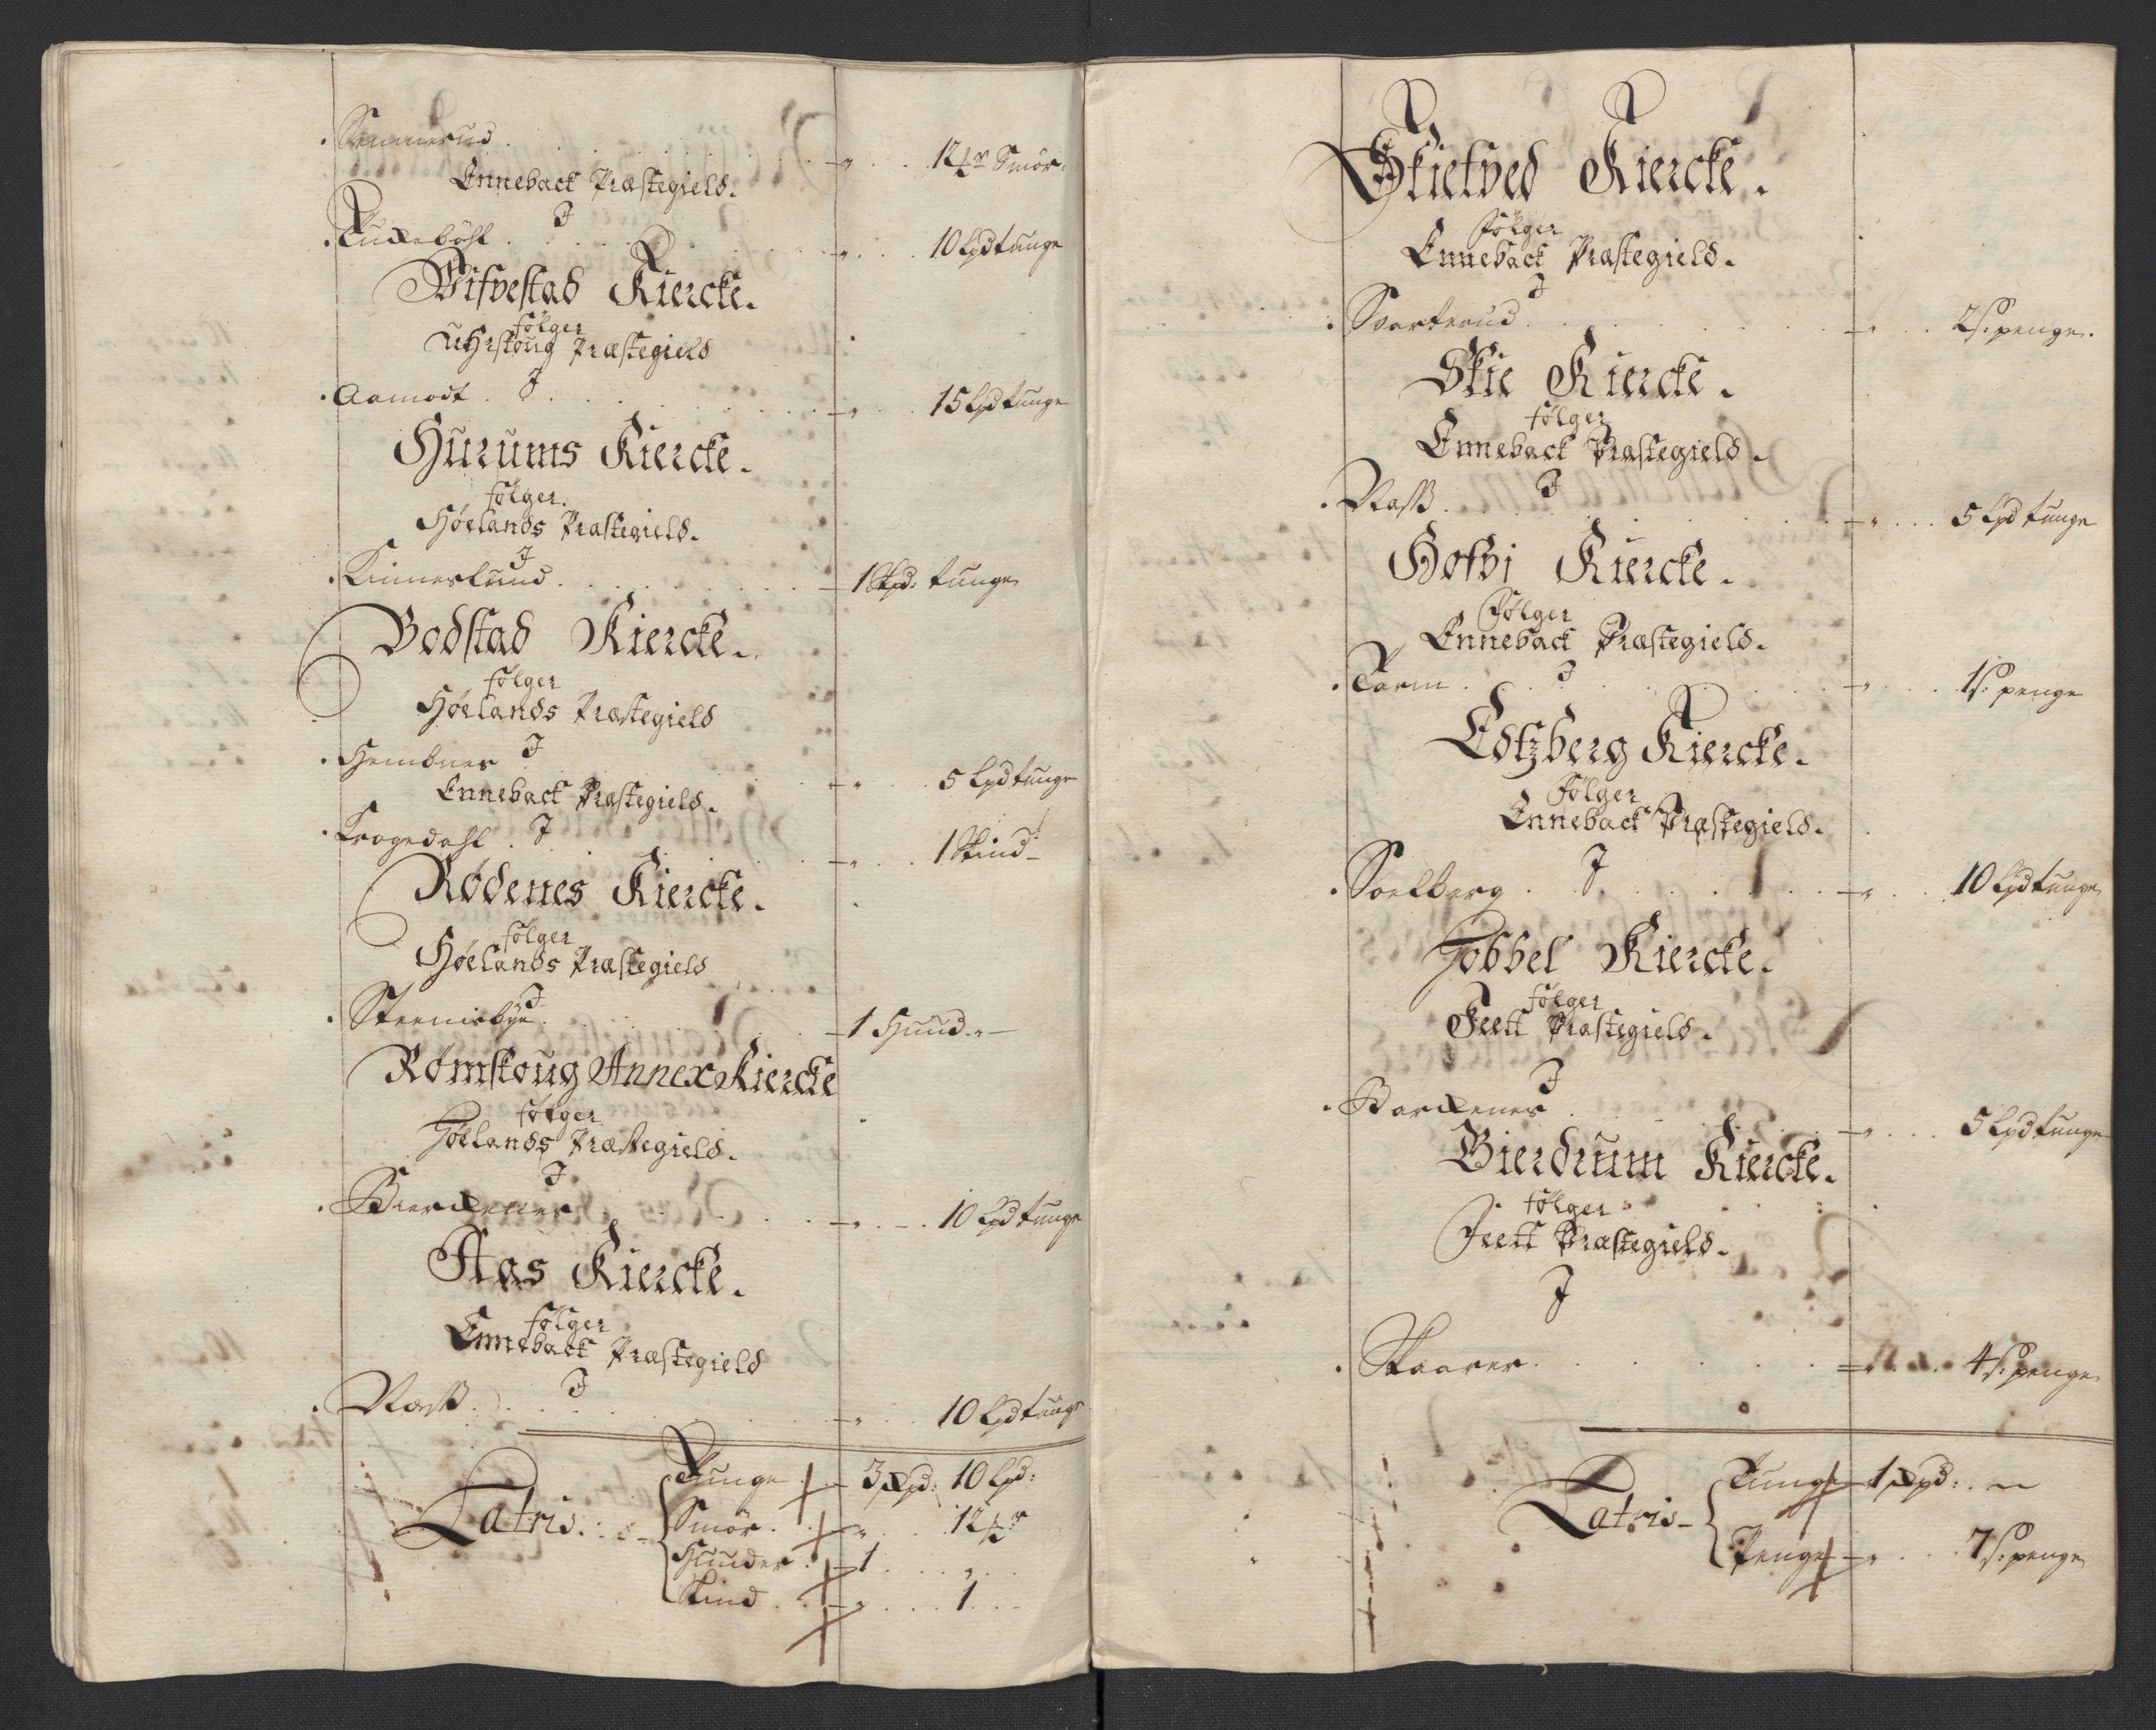 Sennerud . . . . . 12 ℔r Smör.
Enneback Præstegield.
J
Tuxeböhl . . . . 10 Lpd tunge
Bisvestad Kiercke.
fölger
Uhrskoug Præstegield
J
Aamodt . . . . . 15 Lpd tunge
Hurums Kiercke.
fölger.
Høelands Præstegield.
J
Kinneslund . . . . . 1 Skpd: tunge
Bodstad Kiercke.
fölger
Høelands Præstegield
J
Hembner . . . 5 Lpd tunge
Enneback Præstegield.
J
Krogedahl . . . . 1 Skind
Rødenes Kiercke.
fölger
Høelands Præstegield
J
Steenisbye . . . . 1 Huud
Rømskoug Annex Kiercke
fölger
Høelands Præstegield.
J
Bierckenes . . . . 10 Lpd tunge
Aas Kiercke.
fölger
Enneback Præstegield
J
Næss . . . . . 10 Lpd tunge
Latris.
Tunge 3 Skpd: 10 Lpd:
Smör . . 12 ℔r
Huuder . 1 . . .
Skind . . . . . 1 . .
Skietved Kiercke.
Fölger
Enneback Præstegield.
J
Svarterud . . . . . 2 s. penge.
Skie Kiercke.
fölger
Enneback Præstegield.
J
Næss . . . . . 5 Lpd tunge
Hofvi Kiercke.
Fölger
Enneback Præstegield.
J
Tarm . . . . . 1 s. penge
Edtzberg Kiercke.
Fölger
Enneback Præstegield.
J
Soelberg . . . . . 10 Lpd tunge
Høbbel Kiercke.
fölger
Feett Præstegield.
J
Barkenes . . . . . 5 Lpd tunge
Bierdrum Kiercke.
fölger
Feett Præstegield.
J
Skaarer . . . . . 4 s. penge
Latris
Tunge 1 Skpd: . ~
Penge . . . 7 s. penge